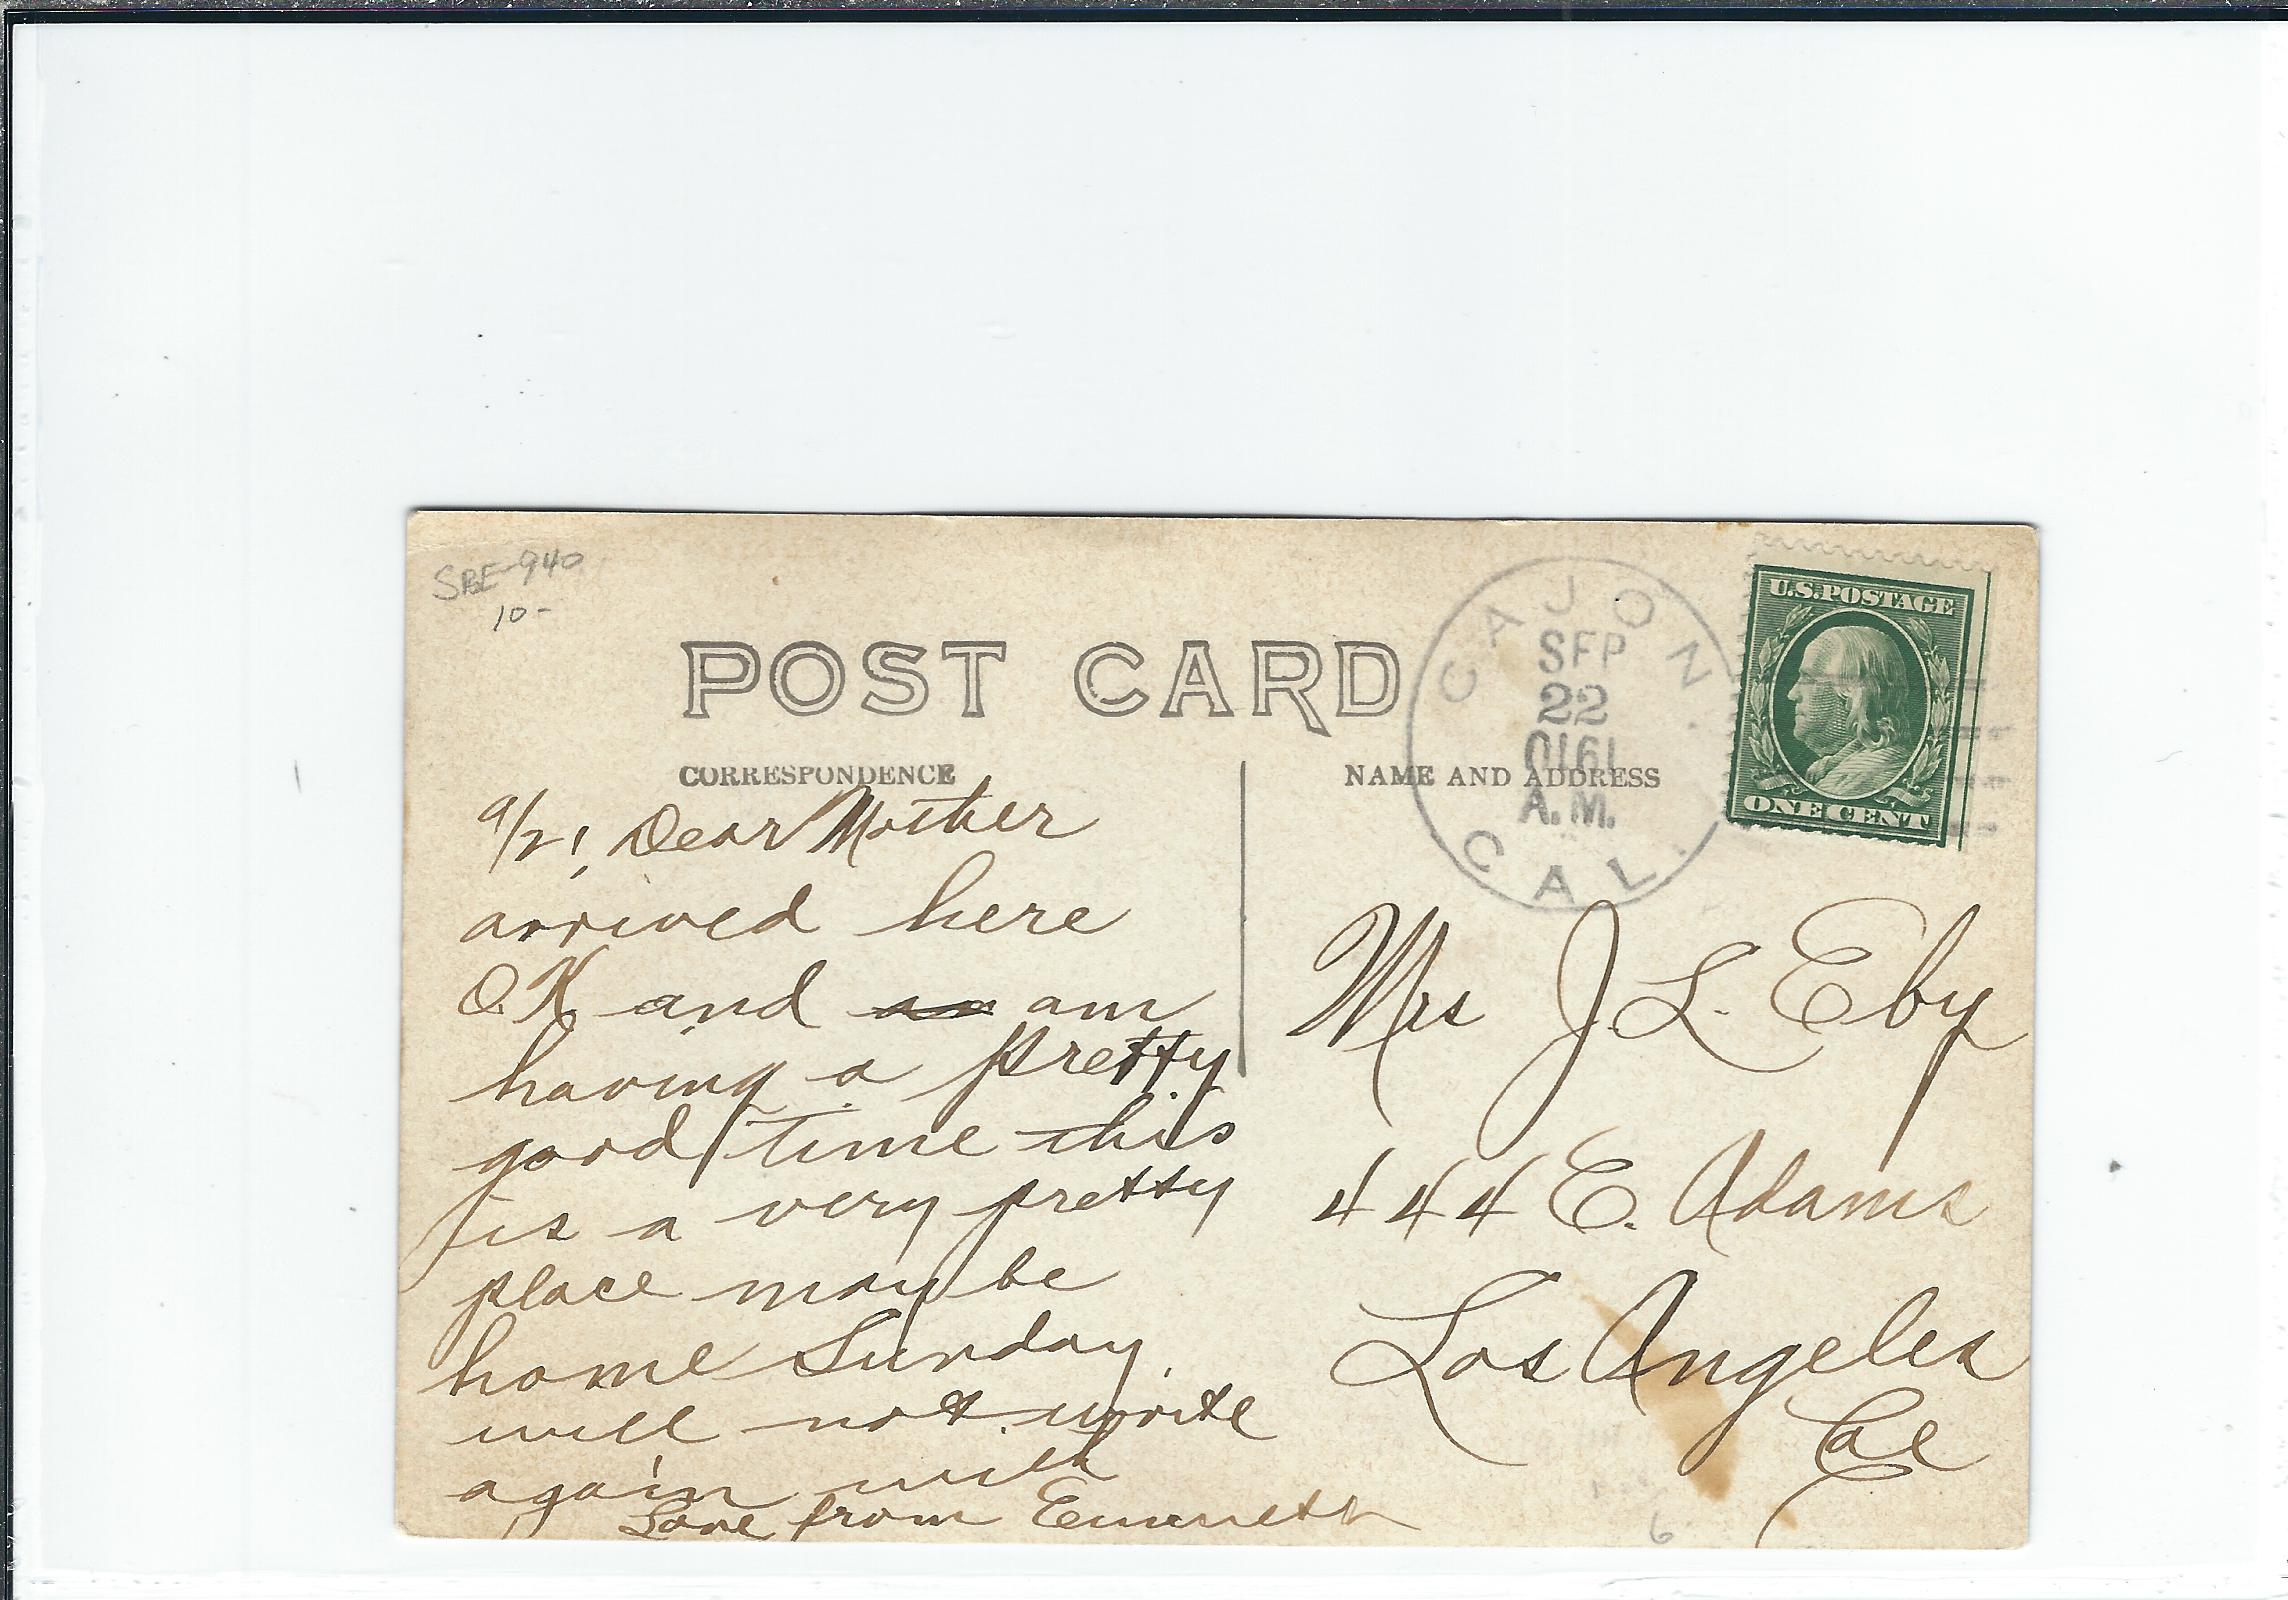 SBE-940
10-
POST CARD
CORRESPONDENCE
NAME AND ADDRESS
CAJON.
SEP
22
1910
A.M.
CAL.
U.S. POSTAGE
ONE CENT
9/21, Dear Mother
arrived here
OK and am
having a pretty
good time this
is a very pretty
place may be
home Sunday.
will not write
again with
Love from Emmett
Mrs J. L. Eby
444 E. Adams
Los Angeles
Cal
6